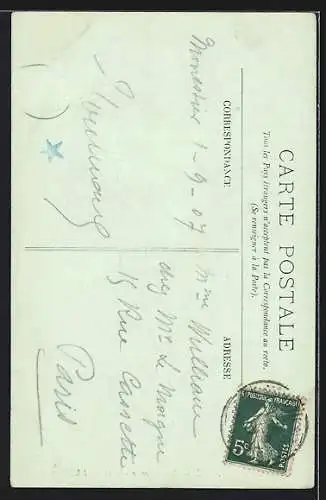 CARTE POSTALE
Tous les Pays étrangers n'acceptent pas la Correspondance au recto.
(Se renseigner à la Poste).
CORRESPONDANCE
ADRESSE
1-9-07
Mme
chez Mr Le Moigne
15 Rue Cassette
Paris
REPUBLIQUE FRANÇAISE
5c
POSTES